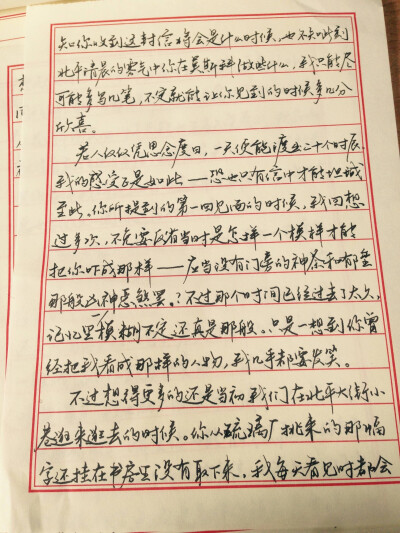 知你收到这封信将会是什么时候，也不知此刻
北平清晨的雾气中你在莫斯科做些什么，我只能尽
可能多写几笔，不定就能让你见到的时候多几分
欣喜。
若人仅仅凭思念度日，一天便能渡出二十个时辰，
我的感受了是如此——恐也只有信中才能坦诚
至此。你所提到的第一回见面的时候，我回想
过多次，不免要反省当时是怎样一个模样才能
把你吓成那样——应当没有门旁的神荼和郁垒
那般凶神恶煞罢。？不过那个时间已经过去了太久，
记忆里模糊不定还真是那般。只是一想到你曾
经把我看成那样的人物，我几乎都要发笑。
不过想得更多的还是当初我们在北平大街小
巷逛来逛去的时候。你从琉璃厂挑来的那幅
字还挂在书房里没有取下来，我每天看见时都会